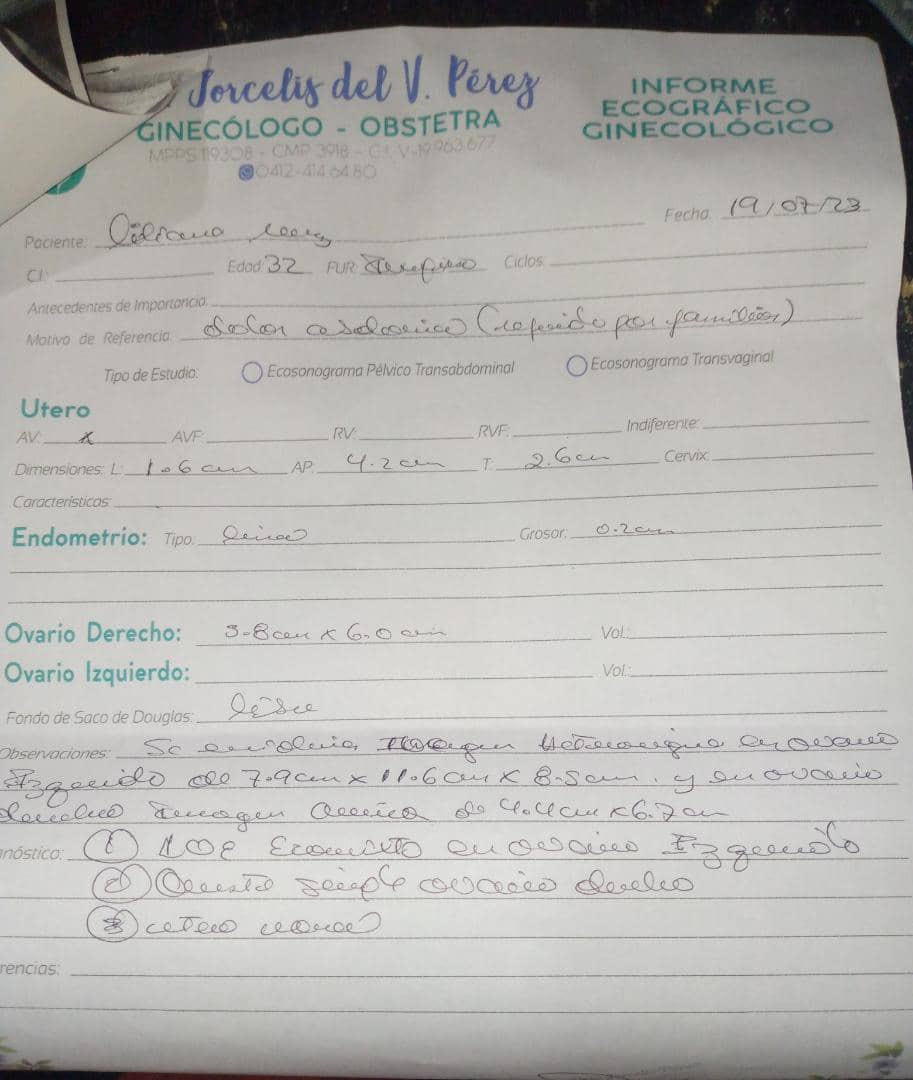 Jorcelis del V. Pérez
GINECÓLOGO - OBSTETRA
MPPS 119308 - CMP 3918 - C.I. V-19.963.677
0412-414 64 80
INFORME
ECOGRÁFICO
GINECOLÓGICO
Fecha: 19/07/23
Paciente:
CI: Edad: 32 FUR: Ciclos:
Antecedentes de Importancia:
Motivo de Referencia: (referido por familiar)
Tipo de Estudio: Ecosonograma Pélvico Transabdominal Ecosonograma Transvaginal
Utero
AV: x AVF: RV: RVF: Indiferente:
Dimensiones: L: 1.6 cm AP: 4.2 cm T: 2.6 cm Cervix:
Características:
Endometrio: Tipo: Grosor: 0.2cm
Ovario Derecho: 3.8cm x 6.0 cm Vol.:
Ovario Izquierdo: Vol.:
Fondo de Saco de Douglas:
Observaciones: Se evidencia Imagen en ovario
Izquierdo de 7.9cm x 11.6cm x 8.5cm. y en ovario
derecho Imagen de 4.4cm x 6.7cm
nóstico: ① LOE en ovario Izquierdo
② simple ovario derecho
③
rencias: